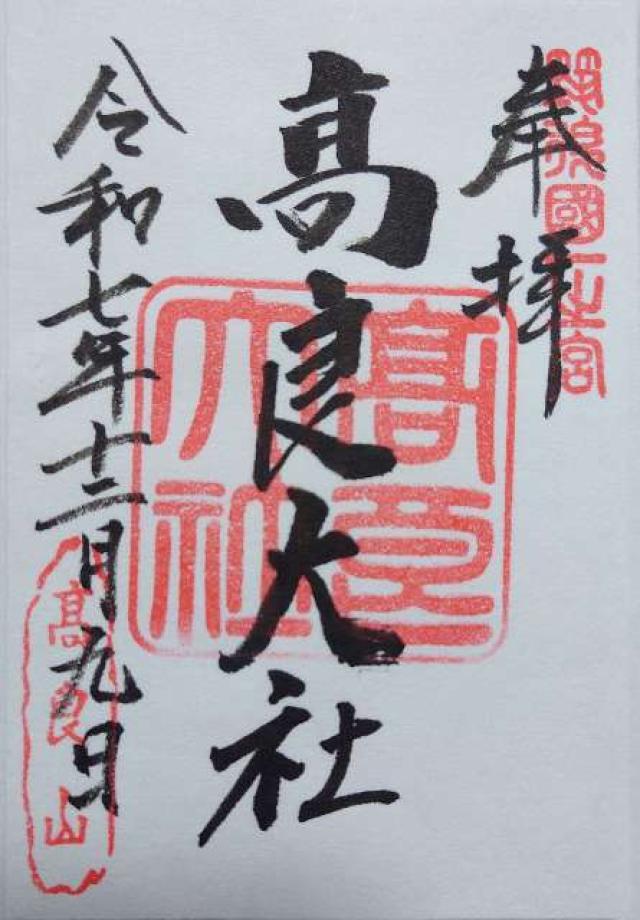 奉拝
筑後國一之宮
髙良大社
髙良大社
令和七年十二月九日
髙良山